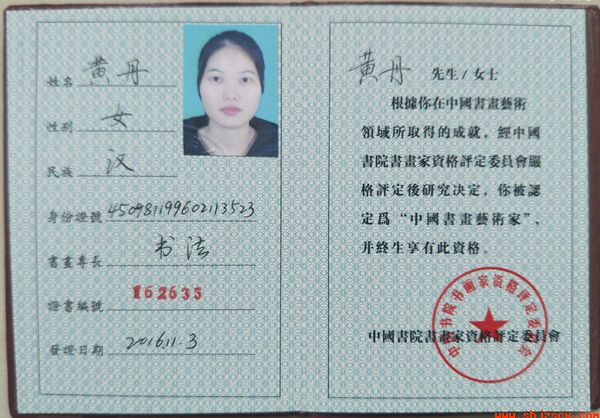 姓名 黄丹
性别 女
民族 汉
身份證號 450981199602113523
書畫專長 书法
證書編號 162635
發證日期 2016.11.3
黄丹 先生/女士
根據你在中國書畫藝術
領域所取得的成就，經中國
書院書畫家資格評定委員會嚴
格評定後研究决定，你被認
定爲“中國書畫藝術家”，
并終生享有此資格。
中國書院書畫家資格評定委員會
中国书院书画家资格评定委员会
www.sbjzscw.com